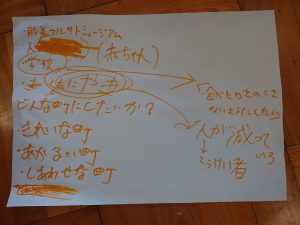 ・能美フルサトミュージアム
人 (赤ちゃん)
学校
どんな町にしたいか?
・きれいな町
・あかるい町
・しあわせな町
「食べものをのこさ
ないようにしたい」
「人が減って
いる
↓
こうけい者